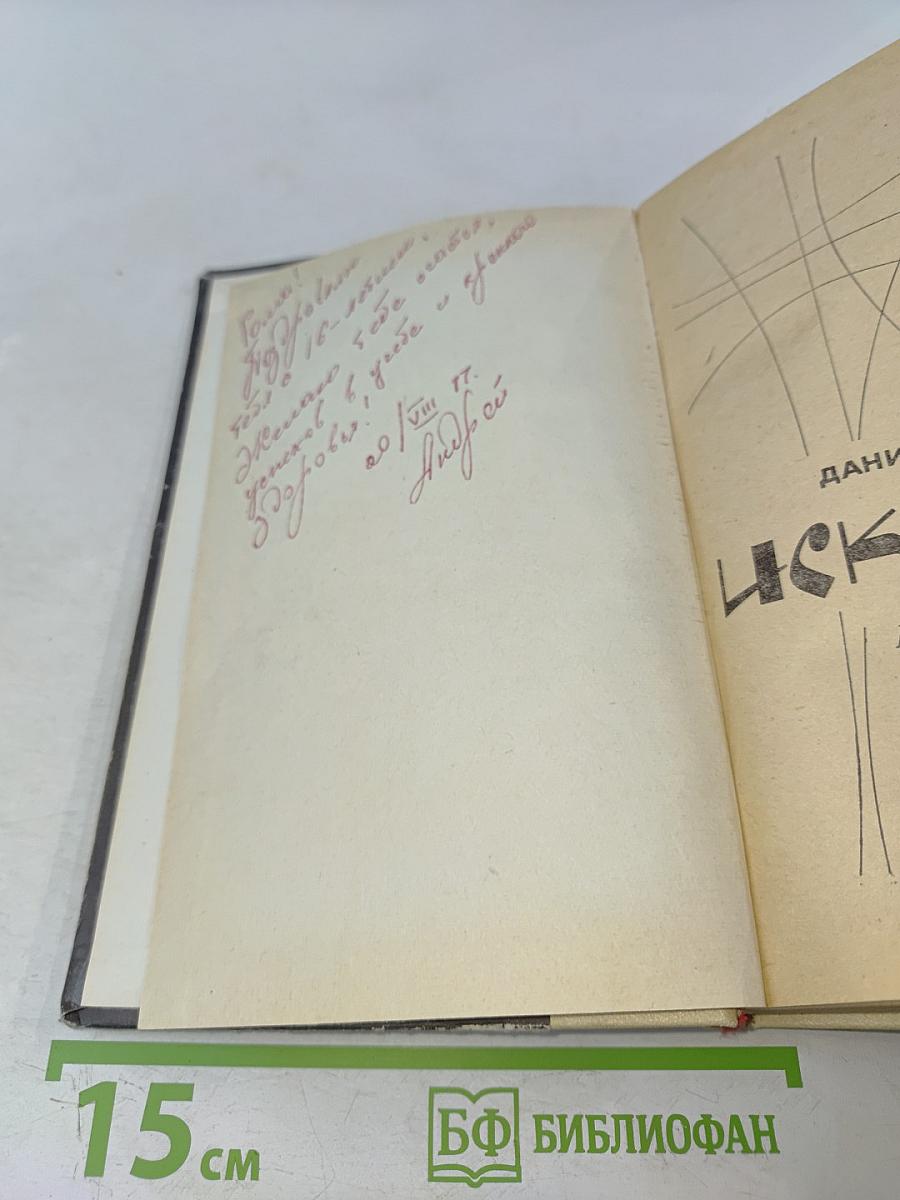 Галя!
Поздравляю
тебя с 16-летием.
Желаю тебе счастья,
успехов в учебе и крепкого
здоровья!
20/VIII 77.
Андрей
ДАНИ
ИСК
15 см
БФ БИБЛИОФАН